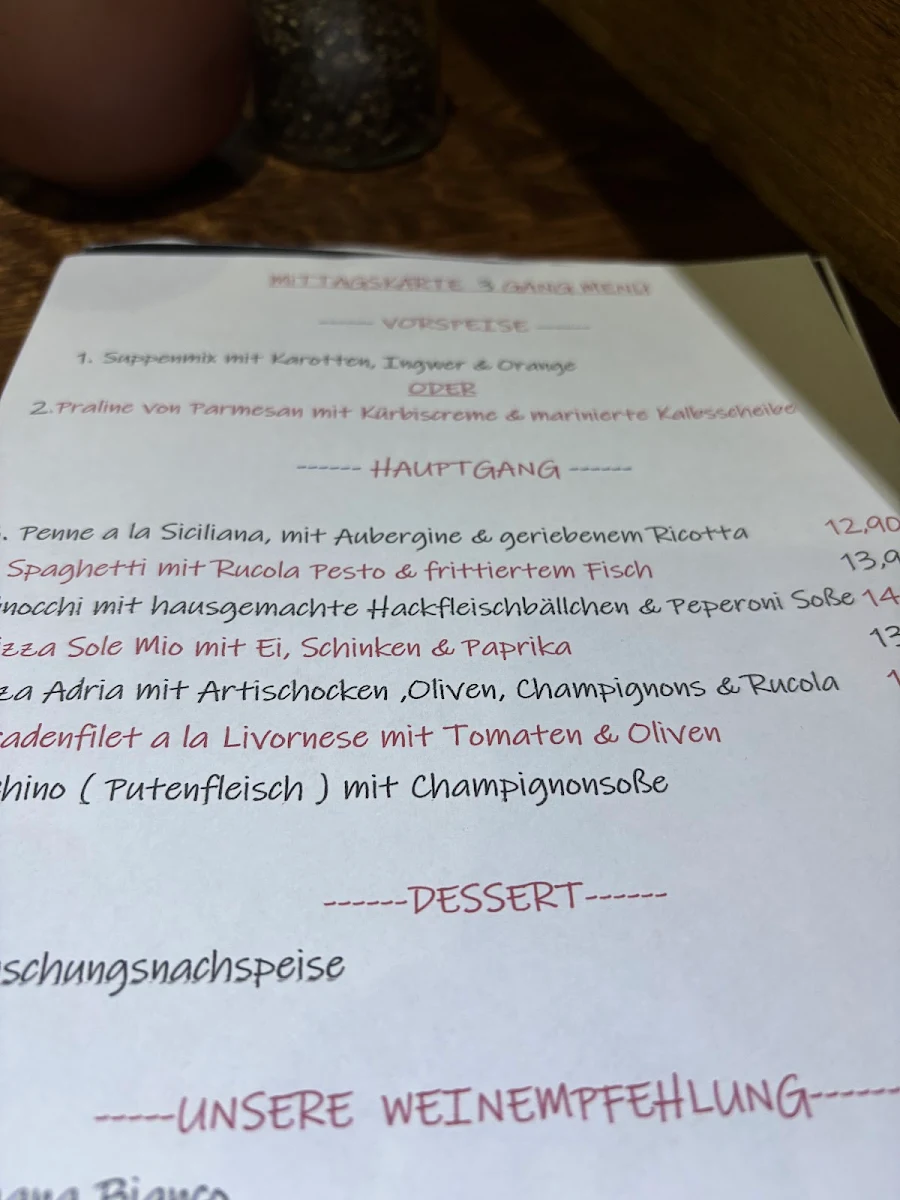 MITTAGSKARTE 3 GANG MENU
------ VORSPEISE ------
1. Suppenmix mit Karotten, Ingwer & Orange
ODER
2.Praline von Parmesan mit Kürbiscreme & marinierte Kalbsscheibe
------ HAUPTGANG ------
. Penne a la Siciliana, mit Aubergine & geriebenem Ricotta 12,90
Spaghetti mit Rucola Pesto & frittiertem Fisch 13,9
nocchi mit hausgemachte Hackfleischbällchen & Peperoni Soße 14
izza Sole Mio mit Ei, Schinken & Paprika 13
za Adria mit Artischocken ,Oliven, Champignons & Rucola 1
adenfilet a la Livornese mit Tomaten & Oliven
hino ( Putenfleisch ) mit Champignonsoße
------DESSERT------
schungsnachspeise
-----UNSERE WEINEMPFEHLUNG-----
Bianco